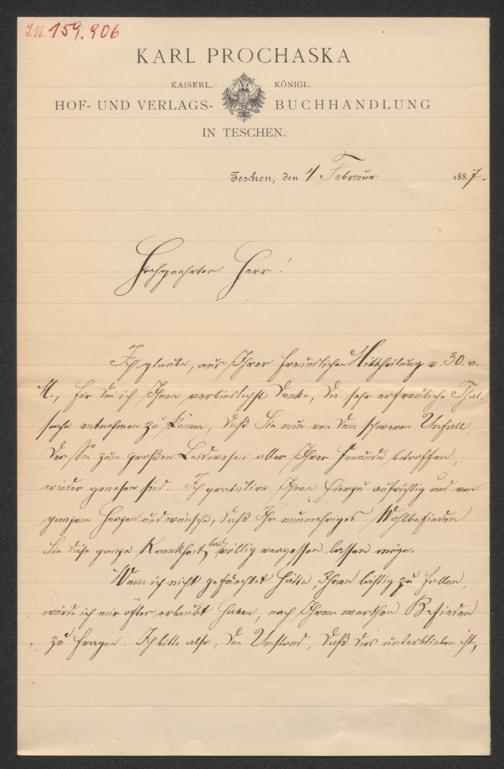 I.N 159.906
KARL PROCHASKA
KAISERL. KÖNIGL.
HOF- UND VERLAGS- BUCHHANDLUNG
IN TESCHEN.
Teschen, den 1. Februar 1887.
Hochgeehrter Herr!
Ich glaube, aus Ihrer freundlichen Mittheilung v. 30. v.
M., für die ich Ihnen verbindlichst danke, die sehr erfreuliche That-
sache entnehmen zu können, daß Sie nun von dem schweren Unfall,
der Sie zum großen Leidwesen aller Ihrer Freunde betroffen,
wieder genesen sind. Ich gratulire Ihnen hierzu aufrichtig und von
ganzem Herzen und wünsche, daß Ihr nunmehriges Wohlbefinden
Sie diese ganze Krankheit bald völlig vergessen lassen möge.
Wenn ich nicht gefürchtet hätte, Ihnen lästig zu fallen,
würde ich mir öfter erlaubt haben, nach Ihrem werthen Befinden
zu fragen. Ich bitte also, den Umstand, daß dies unterblieben ist,